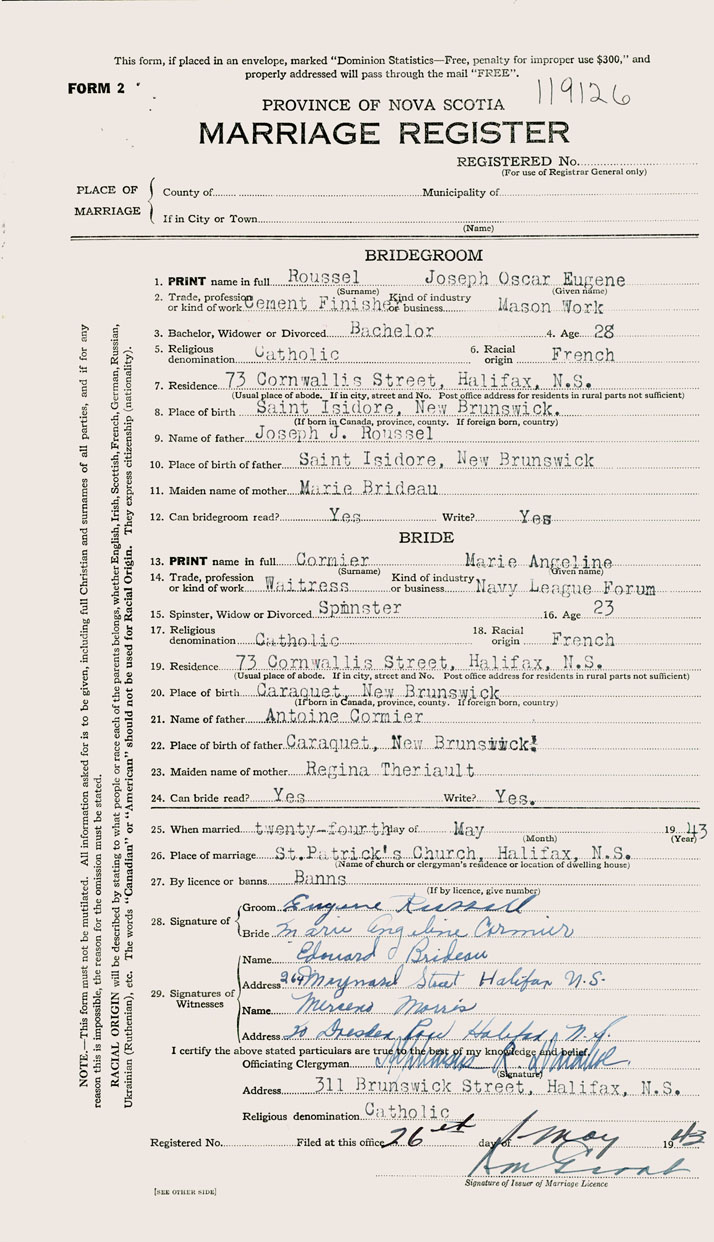 This form, if placed in an envelope, marked "Dominion Statistics—Free, penalty for improper use $300," and
properly addressed will pass through the mail "FREE".
FORM 2
119126
PROVINCE OF NOVA SCOTIA
MARRIAGE REGISTER
REGISTERED No.
(For use of Registrar General only)
PLACE OF MARRIAGE
County of Municipality of
If in City or Town
(Name)
BRIDEGROOM
1. PRINT name in full Roussel Joseph Oscar Eugene
(Surname) (Given name)
2. Trade, profession or kind of work Cement Finisher Kind of industry or business Mason Work
3. Bachelor, Widower or Divorced Bachelor 4. Age 28
5. Religious denomination Catholic 6. Racial origin French
7. Residence 73 Cornwallis Street, Halifax, N.S.
(Usual place of abode. If in city, street and No. Post office address for residents in rural parts not sufficient)
8. Place of birth Saint Isidore, New Brunswick.
(If born in Canada, province, county. If foreign born, country)
9. Name of father Joseph J. Roussel
10. Place of birth of father Saint Isidore, New Brunswick
11. Maiden name of mother Marie Brideau
12. Can bridegroom read? Yes Write? Yes
BRIDE
13. PRINT name in full Cormier Marie Angeline
(Surname) (Given name)
14. Trade, profession or kind of work Waitress Kind of industry or business Navy League Forum
15. Spinster, Widow or Divorced Spinster 16. Age 23
17. Religious denomination Catholic 18. Racial origin French
19. Residence 73 Cornwallis Street, Halifax, N.S.
(Usual place of abode. If in city, street and No. Post office address for residents in rural parts not sufficient)
20. Place of birth Caraquet, New Brunswick
(If born in Canada, province, county. If foreign born, country)
21. Name of father Antoine Cormier
22. Place of birth of father Caraquet, New Brunswick!
23. Maiden name of mother Regina Theriault
24. Can bride read? Yes Write? Yes.
25. When married twenty-fourth day of May 1943
(Month) (Year)
26. Place of marriage St.Patrick's Church, Halifax, N.S.
(Name of church or clergyman's residence or location of dwelling house)
27. By licence or banns Banns
(If by licence, give number)
28. Signature of
Groom Eugene Russell
Bride Marie Angeline Cormier
29. Signatures of Witnesses
Name Edouard J Brideau
Address 264 Maynard Street Halifax N.S.
Name Morris
Address 20 Dresden Row Halifax, N.S.
I certify the above stated particulars are true to the best of my knowledge and belief.
Officiating Clergyman
(Signature)
Address 311 Brunswick Street, Halifax, N.S.
Religious denomination Catholic
Registered No. Filed at this office 26 day of May 1943
Signature of Issuer of Marriage Licence
[SEE OTHER SIDE]
NOTE.—This form must not be mutilated. All information asked for is to be given, including full Christian and surnames of all parties, and if for any
reason this is impossible, the reason for the omission must be stated.
RACIAL ORIGIN will be described by stating to what people or race each of the parents belongs, whether English, Irish, Scottish, French, German, Russian,
Ukrainian (Ruthenian), etc. The words "Canadian" or "American" should not be used for Racial Origin. They express citizenship (nationality).